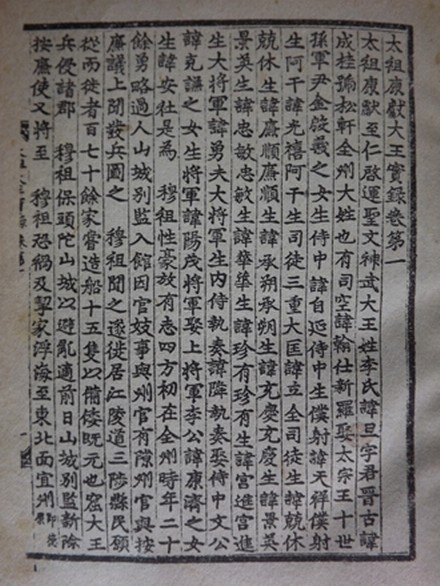 太祖康獻大王實錄卷第一
太祖康獻至仁啓運聖文神武大王姓李氏諱旦字君晋古諱
成桂號松軒全州大姓也有司空諱翰仕新羅娶太宗王十世
孫軍尹金殷義之女生侍中諱自延侍中生僕射諱天祥僕射
生阿干諱光禧阿干生司徒三重大匡諱立全司徒生諱兢休
兢休生諱廉順廉順生諱承朔承朔生諱充慶充慶生諱景英
景英生諱忠敏忠敏生諱華華生諱珍有珍有生諱宮進宮進
生大將軍諱勇夫大將軍生内侍執奏諱隣執奏娶侍中文公
諱克謙之女生將軍諱陽茂將軍娶上將軍李公諱康濟之女
生諱安社是爲 穆祖性豪放有志四方初在全州時年二十
餘勇略過人山城別監入館因官妓事與州官有隙州官與按
廉議上聞發兵圖之 穆祖聞之遂徙居江陵道三陟縣民願
從而徙者百七十餘家嘗造船十五隻以備倭旣元也窟大王
兵侵諸郡 穆祖保頭陀山城以避亂適前日山城別監新除
按廉使又將至 穆祖恐禍及挈家浮海至東北面宜州